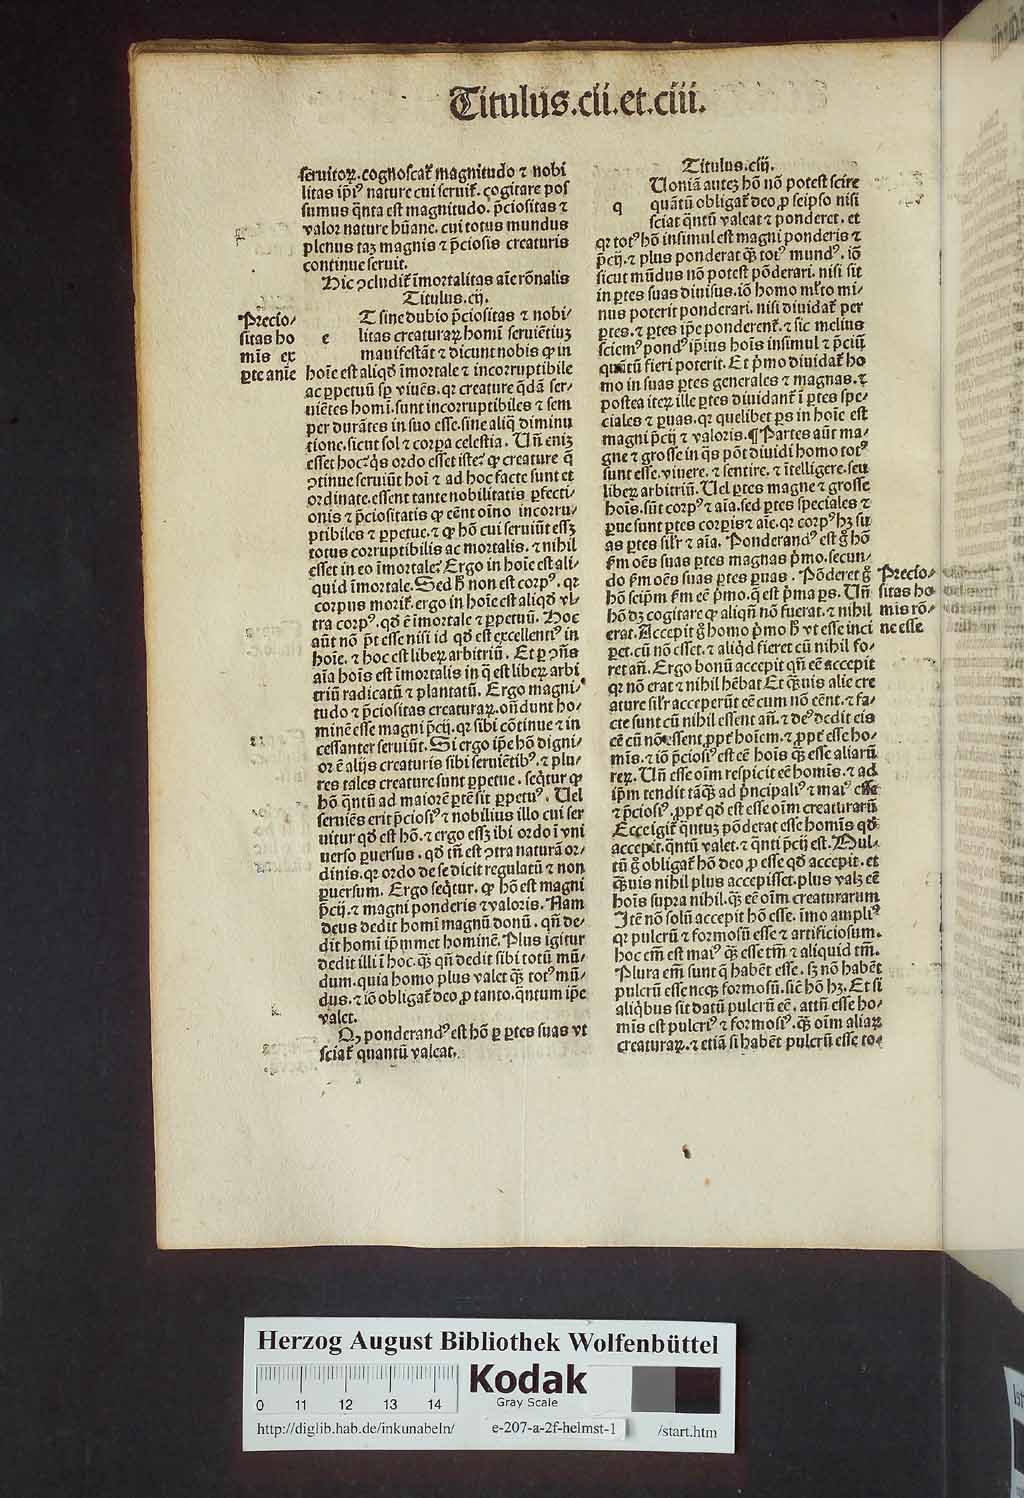 Titulus.cii.et.ciii.
seruitoꝝ.cognoscat᷑ magnitudo ⁊ nobi
litas ip̄iꝰ nature cui seruit᷑. cogitare pos
sumus q̄nta est magnitudo. p̄ciositas ⁊
valor nature hūane. cui totus mundus
plenus tam magnis ⁊ p̄ciosis creaturis
continue seruit.
Hic ꝯcludit᷑ īmortalitas aīe rōnalis
Titulus.cij.
Precio/
sitas ho
mīs ex
ꝑte anīe
e
T sine dubio p̄ciositas ⁊ nobi/
litas creaturaꝝ homī seruiētiuꝫ
manifestāt ⁊ dicunt nobis ꝙ in
hoīe est aliqd̄ īmortale ⁊ incorruptibile
ac ꝑpetuū sꝑ viuēs. qꝛ creature q̄dā ser/
uiētes homī. sunt incorruptibiles ⁊ sem
per durātes in suo esse. sine aliq̄ diminu
tione. sicut sol ⁊ corpa celestia. Un̄ enim
esset hoc? q̄s ordo esset iste? ꝙ creature q̄
ꝯtinue seruiūt hoī ⁊ ad hoc facte sunt et
ordinate. essent tante nobilitatis ꝑfecti/
onis ⁊ p̄ciositatis ꝙ eēnt oīno incorru/
ptibiles ⁊ ꝑpetue. ⁊ ꝙ hō cui seruiūt essꝫ
totus corruptibilis ac mortalis. ⁊ nihil
esset in eo īmortale? Ergo in hoīe est ali/
quid īmortale. Sed h̄ non est corpꝰ. qꝛ
corpus morit᷑. ergo in hoīe est aliqd̄ vl/
tra corpꝰ. qd̄ ē īmortale ⁊ ꝑpetuū. Hoc
aūt nō p̄t esse nisi id qd̄ est excellentiꝰ in
hoīe. ⁊ hoc est liberū arbitriū. Et ꝑ ꝯn̄s
aīa hoīs est īmortalis in q̄ est liberū arbi
triū radicatū ⁊ plantatū. Ergo magni/
tudo ⁊ p̄ciositas creaturaꝝ. on̄dunt ho/
minē esse magni p̄cij. qꝛ sibi cōtinue ⁊ in
cessanter seruiūt. Si ergo ip̄e hō digni/
or ē alijs creaturis sibi seruiētibꝰ. ⁊ plu/
res tales creature sunt ꝑpetue. seq̄tur ꝙ
hō q̄ntū ad maiorē ꝑtē sit ꝑpetuꝰ. Uel
seruiēs erit p̄ciosiꝰ ⁊ nobilius illo cui ser
uitur qd̄ est hō. ⁊ ergo essꝫ ibi ordo ī vni
uerso ꝑuersus. qd̄ tn̄ est ꝯtra naturā or/
dinis. qꝛ ordo de se dicit regulatū ⁊ non
ꝑuersum. Ergo seq̄tur. ꝙ hō est magni
p̄cij. ⁊ magni ponderis ⁊ valoris. Nam
deus dedit homī magnū donū. qn̄ de/
dit homī ip̄mmet hominē. Plus igitur
dedit illi ī hoc. q̄ꝫ qn̄ dedit sibi totū mū/
dum. quia homo plus valet q̄ꝫ totꝰ mū/
dus. ⁊ iō obligat᷑ deo ꝓ tanto. q̄ntum ip̄e
valet.
Qꝫ ponderandꝰ est hō ꝑ ꝑtes suas vt
sciat᷑ quantū valeat.
Titulus.ciij.
q
Uoniā autē hō nō potest scire
quātū obligat᷑ deo ꝓ seipso nisi
sciat q̄ntū valeat ⁊ ponderet. et
qꝛ totꝰ hō insimul est magni ponderis ⁊
p̄cij. ⁊ plus ponderat q̄ꝫ totꝰ mundꝰ. iō
sicut mūdus nō potest pōderari. nisi sit
in ꝑtes suas diuisus. iō homo ml̓to mi/
nus poterit ponderari. nisi diuidat᷑ per
ꝑtes. ⁊ ꝑtes ip̄e ponderent᷑. ⁊ sic melius
sciemꝰ pondꝰ ip̄ius hoīs insimul ⁊ p̄ciū
quātū fieri poterit. Et p̄mo diuidat᷑ ho
mo in suas ꝑtes generales ⁊ magnas. ⁊
postea iteꝝ ille ꝑtes diuidant᷑ ī ꝑtes spe/
ciales ⁊ ꝑuas. qꝛ quelibet ꝑs in hoīe est
magni p̄cij ⁊ valoris. ¶ Partes aūt ma/
gne ⁊ grosse in q̄s pōt diuidi homo totꝰ
sunt esse. viuere. ⁊ sentire. ⁊ ītelligere. seu
liberū arbitriū. Uel ꝑtes magne ⁊ grosse
hoīs. sūt corpꝰ ⁊ aīa. sed ꝑtes speciales ⁊
ꝑue sunt ꝑtes corpis ⁊ aīe. qꝛ corpꝰ hꝫ su
as ꝑtes sil̓r ⁊ aīa. Ponderandꝰ est g̊ hō
fm̄ oēs suas ꝑtes magnas p̄mo. secun/
do fm̄ oēs suas ꝑtes ꝑuas. Pōderet g̊
hō seip̄m fm̄ eē p̄mo. q̄ est p̄ma ꝑs. Un̄
hō dꝫ cogitare ꝙ aliqn̄ nō fuerat. ⁊ nihil
erat. Accepit g̊ homo p̄mo h̄ vt esse inci
ꝑet. cū nō esset. ⁊ aliqd̄ fieret cū nihil fo/
ret an̄. Ergo bonū accepit qn̄ eē accepit
qꝛ nō erat ⁊ nihil hēbat Et q̄ꝫuis alie cre
ature sil̓r acceperūt eē cum nō eēnt. ⁊ fa/
cte sunt cū nihil essent an̄. ⁊ deꝰ dedit eis
eē cū nō essent. ꝓpt᷑ hoīem. ⁊ ꝓpt᷑ esse ho/
mīs. ⁊ iō p̄ciosiꝰ est eē hoīs q̄ꝫ esse aliarū
reꝝ. Un̄ esse oīm respicit eē homīs. ⁊ ad
ip̄m tendit tāq̄ꝫ ad p̄ncipaliꝰ ⁊ maiꝰ esse
⁊ p̄ciosiꝰ. ꝓpt᷑ qd̄ est esse oīm creaturarū
Ecce igit᷑ q̄ntuꝫ pōderat esse homīs qd̄
accepit. q̄ntū valet. ⁊ q̄nti p̄cij est. Mul/
tū g̊ obligat᷑ hō deo ꝓ esse qd̄ accepit. et
q̄ꝫuis nihil plus accepisset. plus valꝫ eē
hoīs supra nihil. q̄ꝫ eē oīm creaturarum
Itē nō solū accepit hō esse. īmo ampliꝰ
qꝛ pulcrū ⁊ formosū esse ⁊ artificiosum.
hoc em̄ est maiꝰ q̄ꝫ esse tm̄ ⁊ aliquid tm̄.
Plura em̄ sunt q̄ habēt esse. sꝫ nō habēt
pulcrū esse neqꝫ formosū. sic̄ hō hꝫ. Et si
aliq̄bus sit datū pulcrū eē. attn̄ esse ho/
mīs est pulcriꝰ ⁊ formosiꝰ. q̄ꝫ oīm aliaꝝ
creaturaꝝ. ⁊ etiā si habēt pulcrū esse to/
Precio/
sitas ho
mīs rō/
ne esse
Herzog August Bibliothek Wolfenbüttel
Kodak
Gray Scale
0 11 12 13 14
http://diglib.hab.de/inkunabeln/ e-207-a-2f-helmst-1 /start.htm